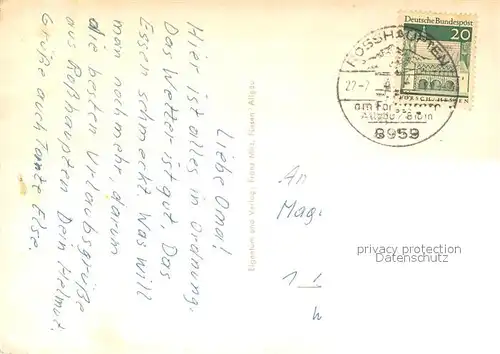 Liebe Oma!
Hier ist alles in Ordnung.
Das Wetter ist gut, Das
Essen schmeckt. Was will
man noch mehr, darum
die besten Urlaubsgrüße
aus Roßhaupten Dein Helmut.
Grüße auch Tante Else.
Eigentum und Verlag: Franz Milz, Füssen / Allgäu
Deutsche Bundespost
20
LORSCH/HESSEN
ROSSHAUPTEN
22.-7.
am Forggensee
Allgäu
8959
An
Mag
1
privacy protection
Datenschutz